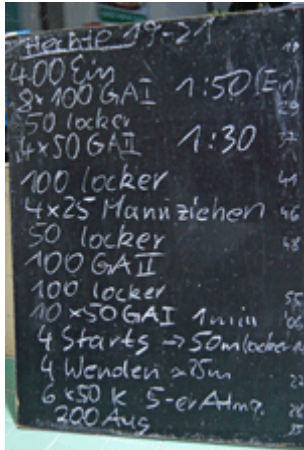 Hechte 19-21
400 Ein
8x100 GAI 1:50 (Ein
50 locker
4x50 GAII 1:30
100 locker 41
4x25 Mannziehen 46
50 locker 48
100 GAII
100 locker
10x50 GAI 1min
4 Starts → 50m locker
4 Wenden 25m
6x50 K 5-er Atmg.
200 Aus